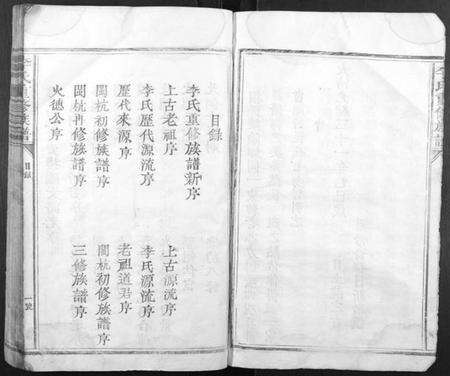 目錄
李氏重修族譜新序
上古老祖序
上古源流序
李氏歷代源流序
李氏源流序
歷代來源序
老祖道君序
閩杭初修族譜序
閩杭初修族譜序
閩杭冉修族譜序
三修族譜序
火德公序
李氏重修族譜
目錄
一號
李氏重修族譜